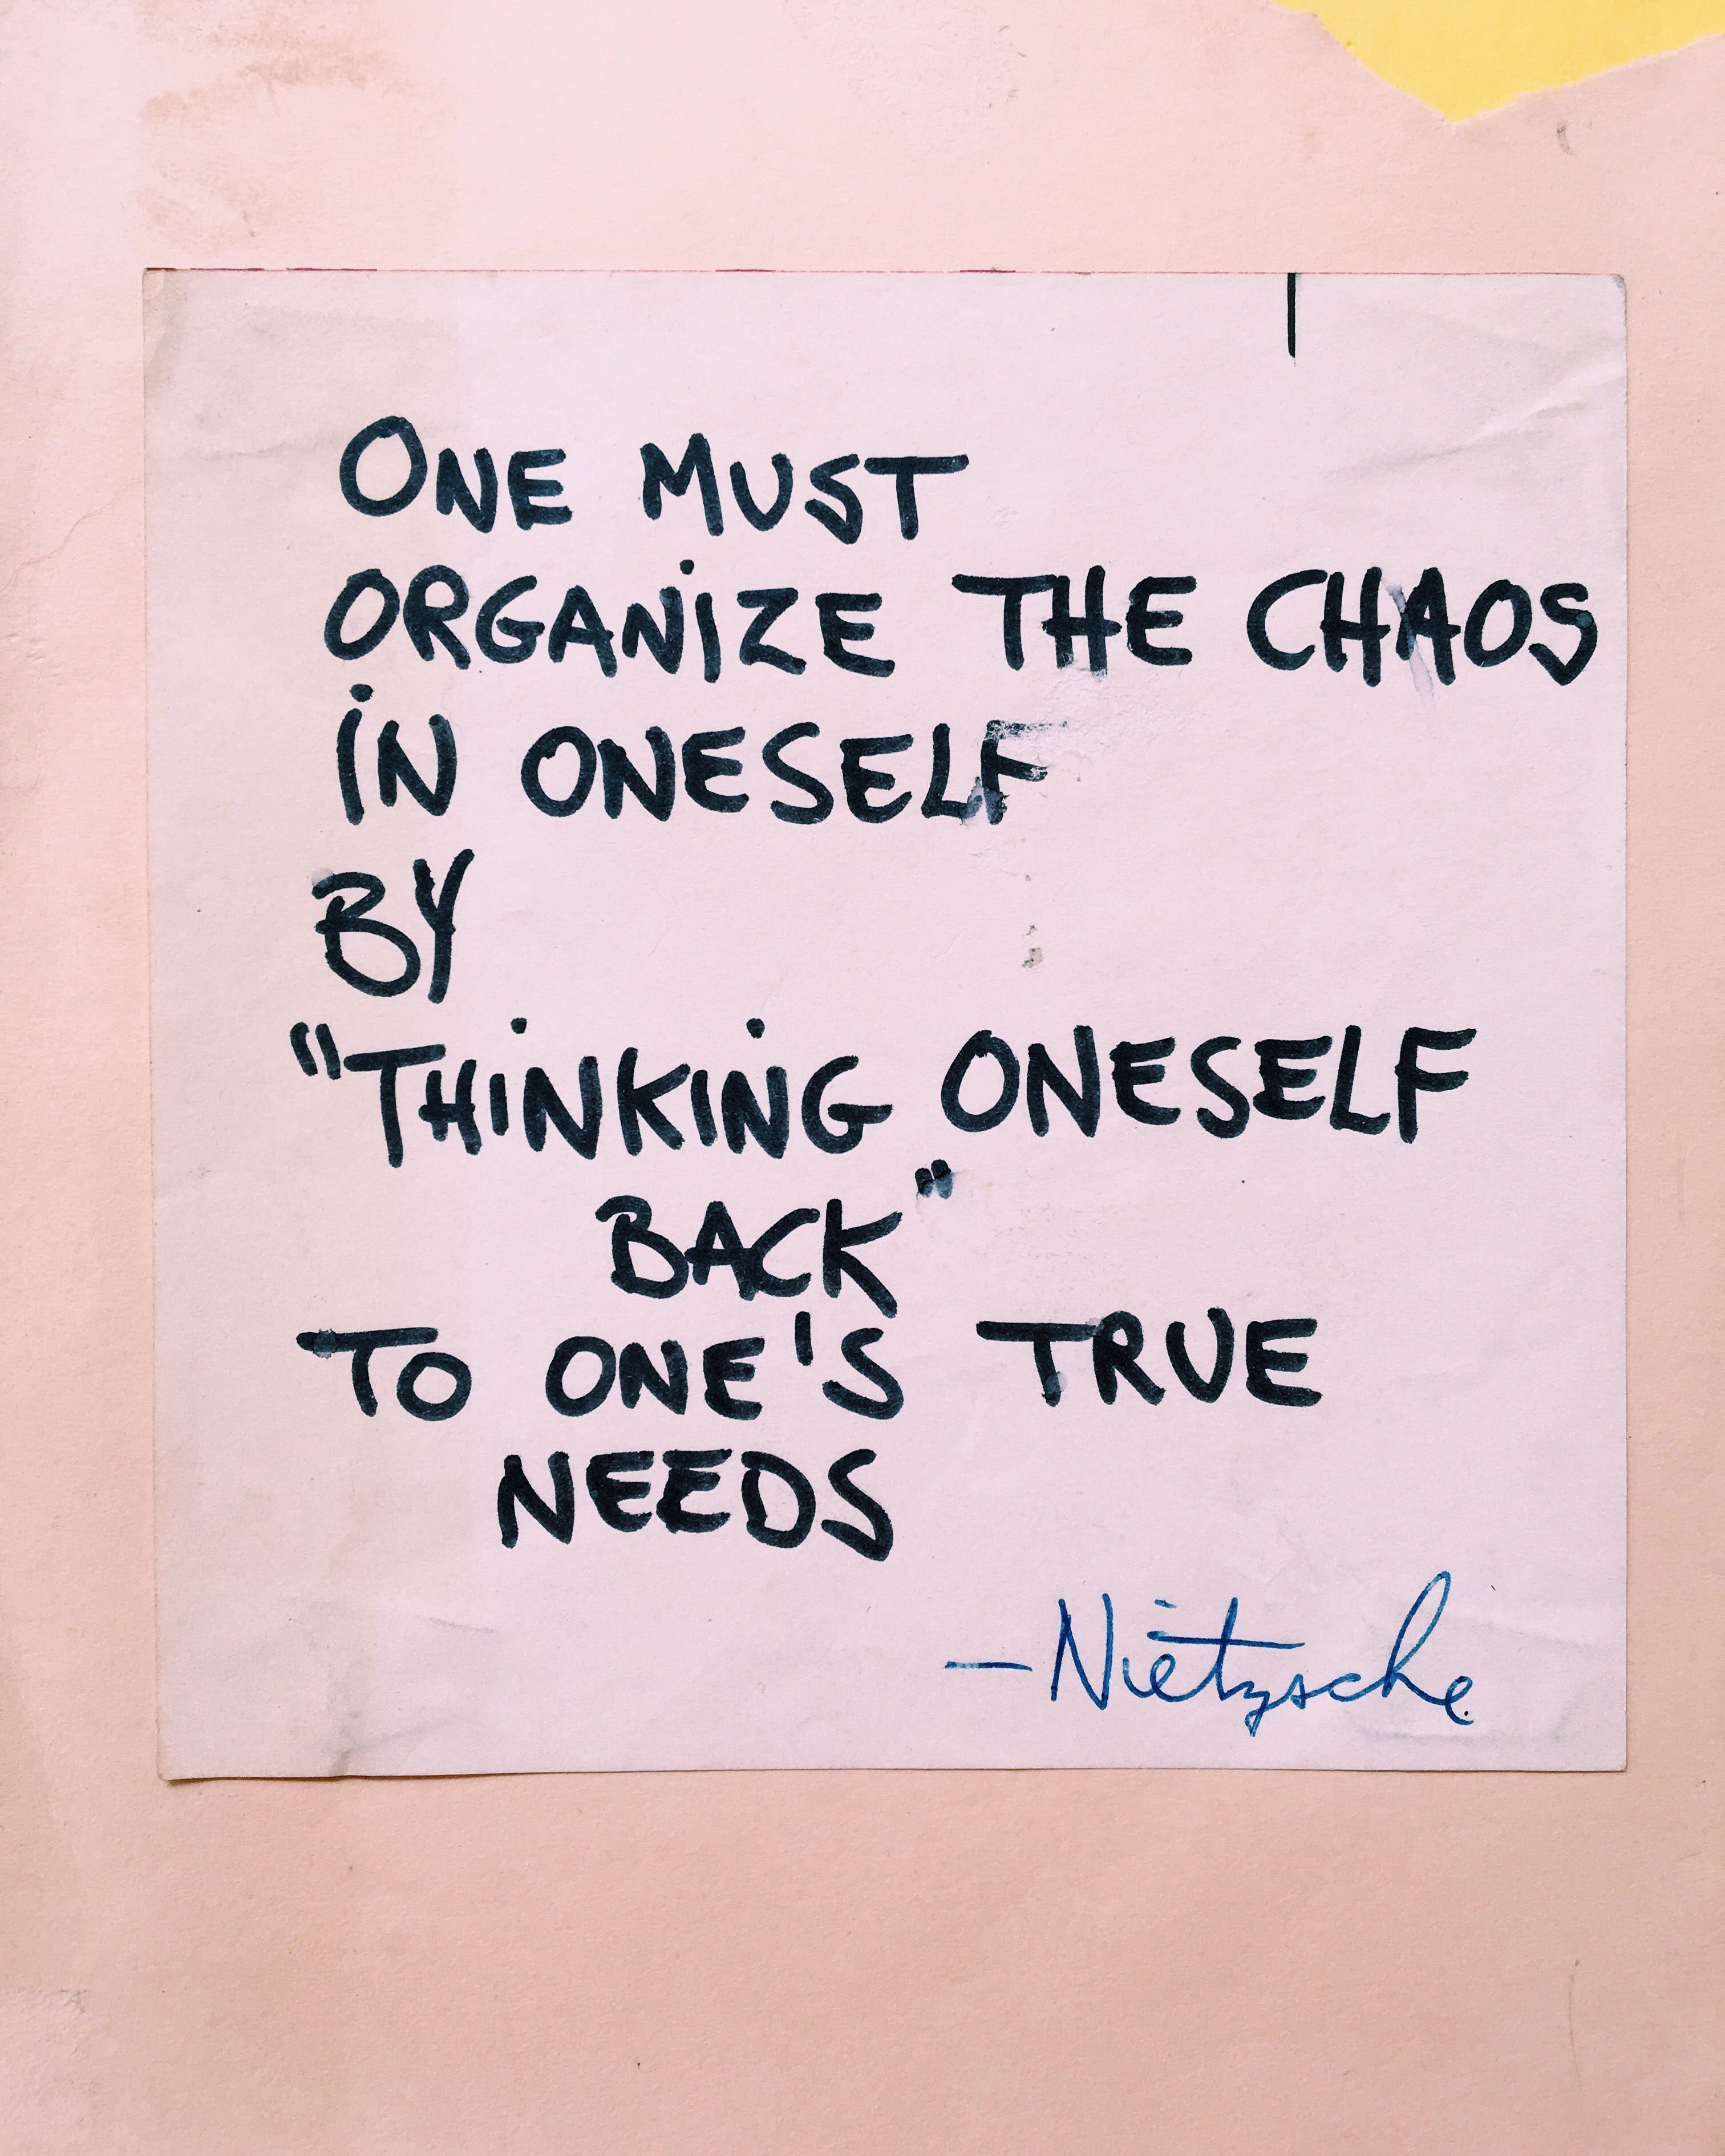 ONE MUST
ORGANIZE THE CHAOS
IN ONESELF
BY
"THINKING ONESELF
BACK"
TO ONE'S TRUE
NEEDS
—Nietzsche